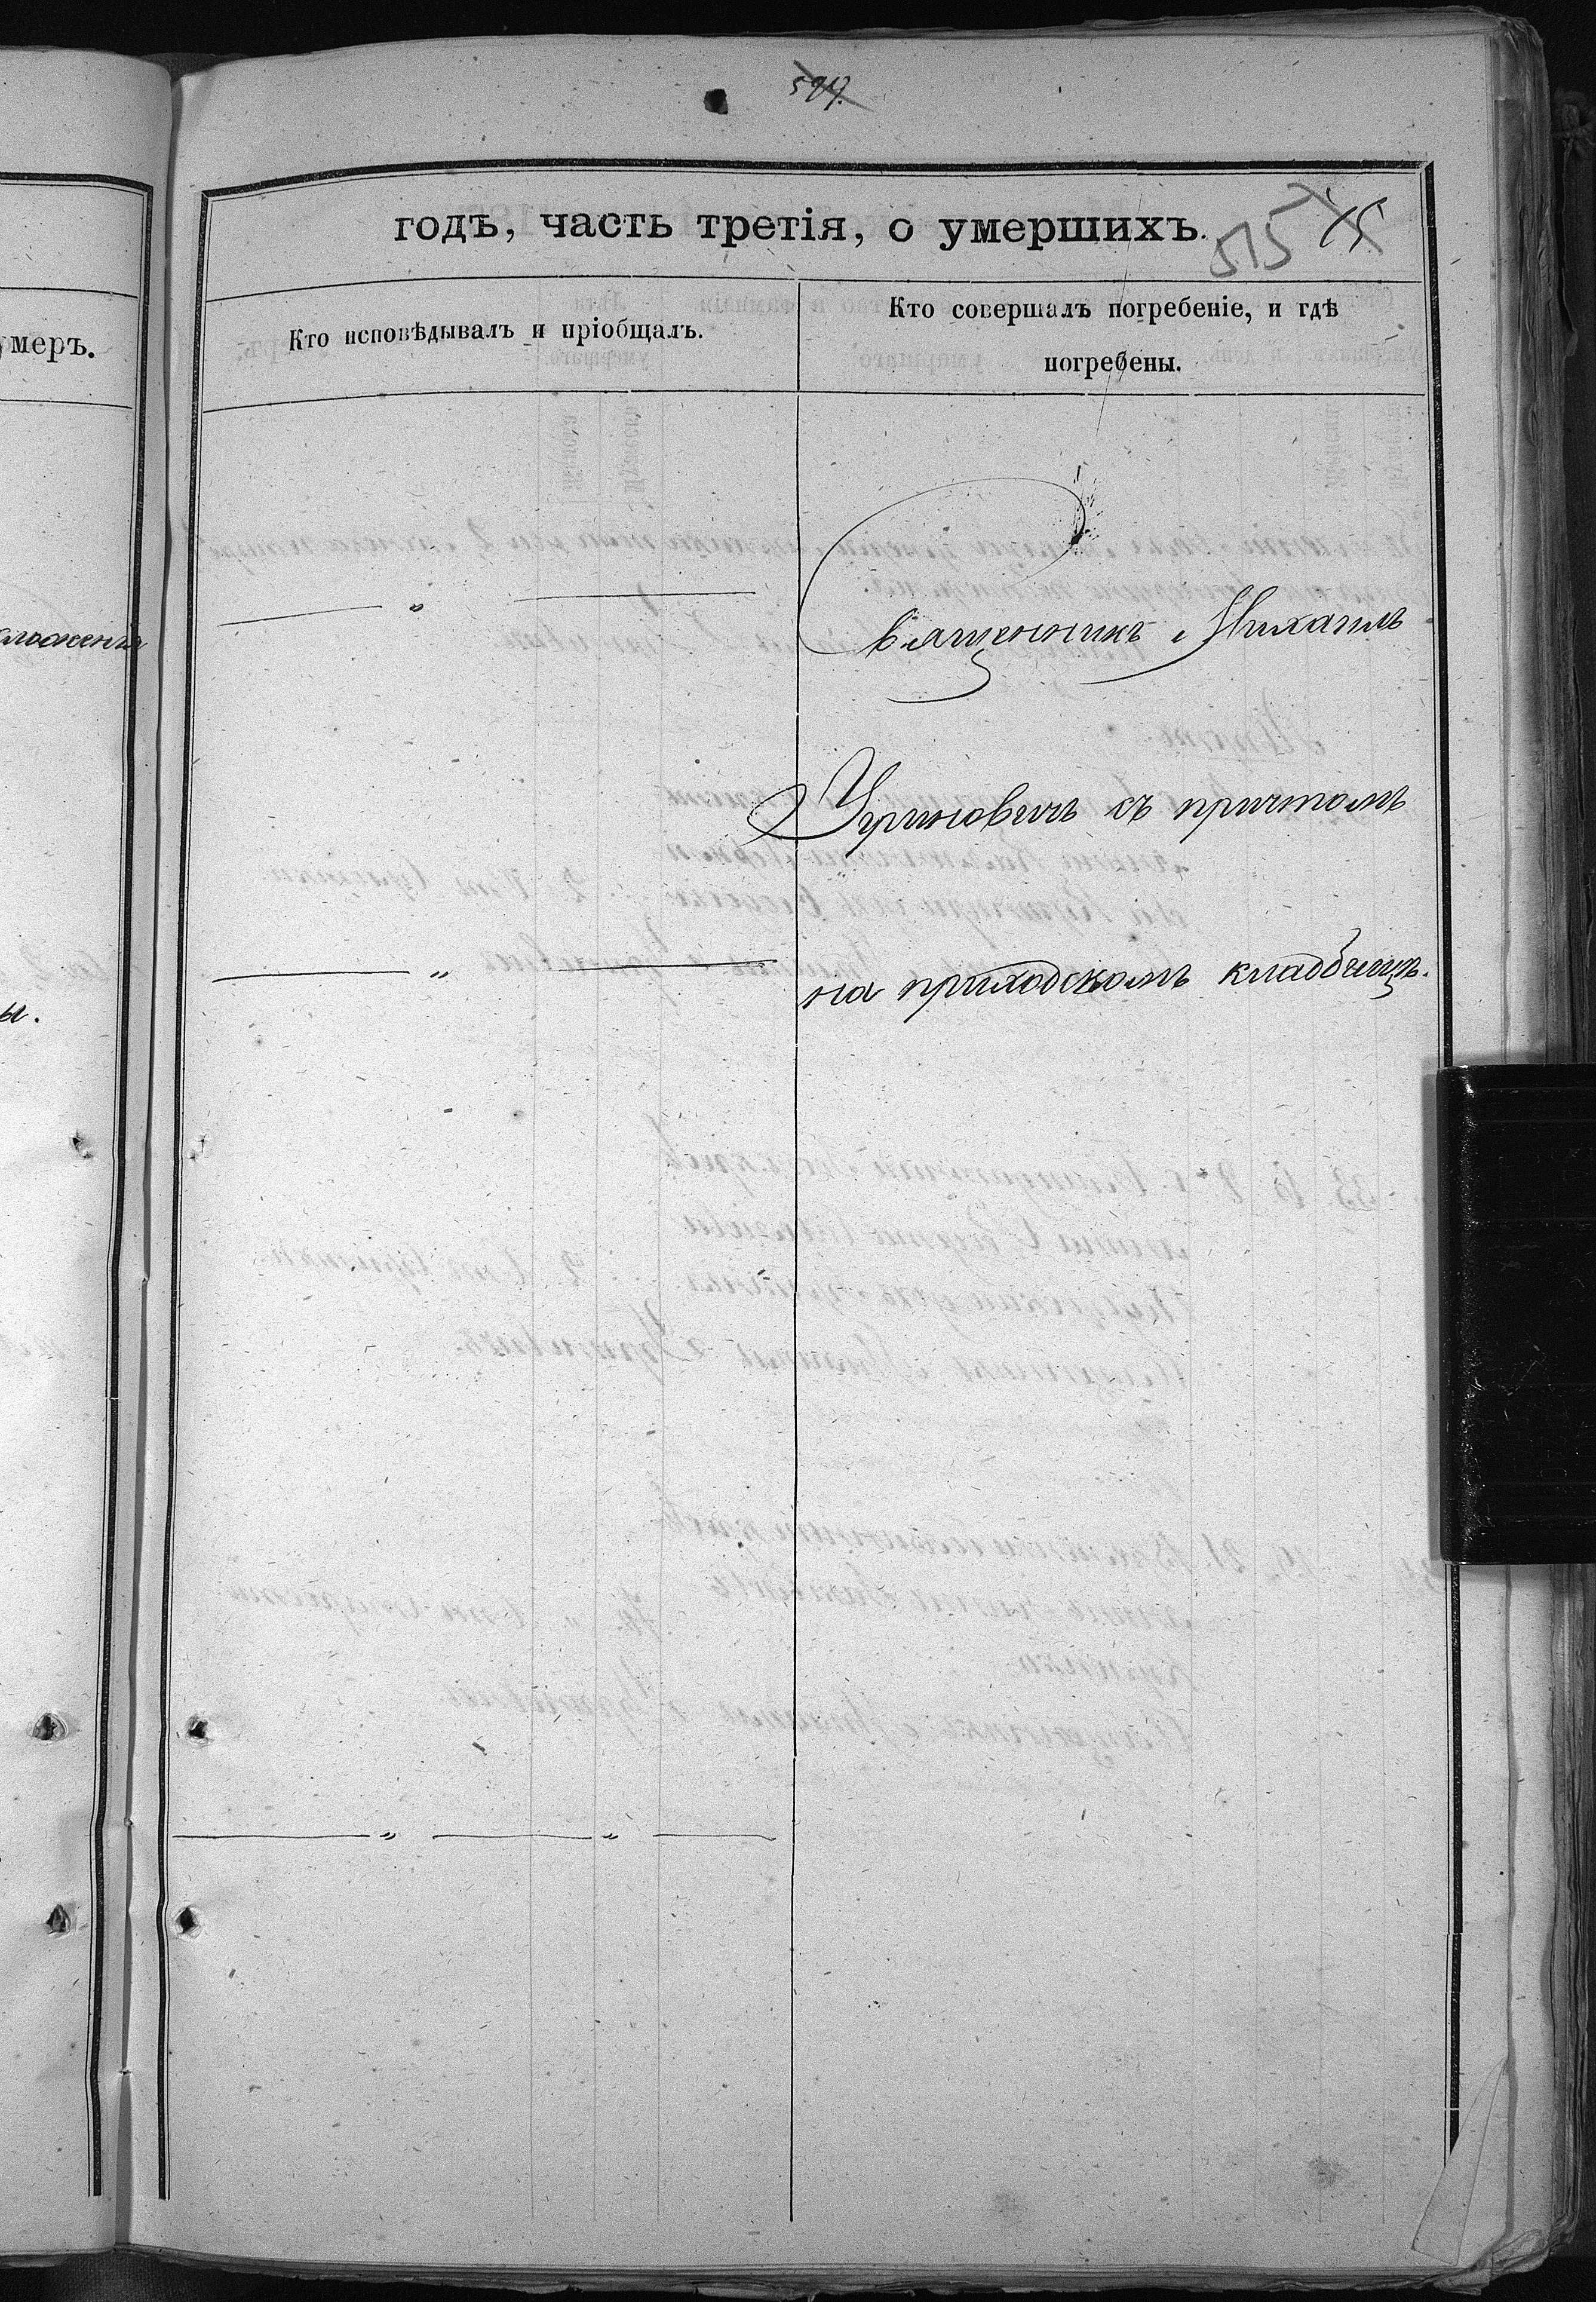 599.
годъ, часть третія, о умершихъ.
515 75
умеръ.
Кто исповѣдывалъ и пріобщалъ.
Кто совершалъ погребеніе, и гдѣ
погребены.
Священникъ Михаилъ
Угриновичъ съ причтомъ
на приходскомъ кладбищѣ.
ы.